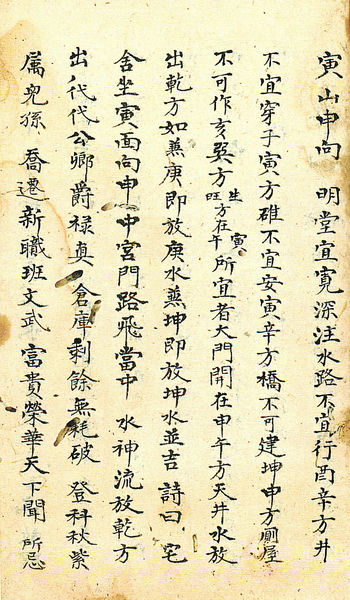 寅山申向　明堂宜寬深注水路不宜行酉辛方井
不宜穿子寅方碓不宜安寅辛方橋不可建坤申方廁屋
不可作亥巽方生旺方在寅午所宜者大門開在申午方天井水放
出乾方如蒸庚即放庚水蒸坤即放坤水並吉　詩曰　宅
舍坐寅面向申　中宮門路飛當中　水神流放乾方
出　代代公卿爵祿真　倉庫剩餘無耗破　登科秋紫
属兒孫　喬遷新職班文武　富貴榮華天下聞　所忌